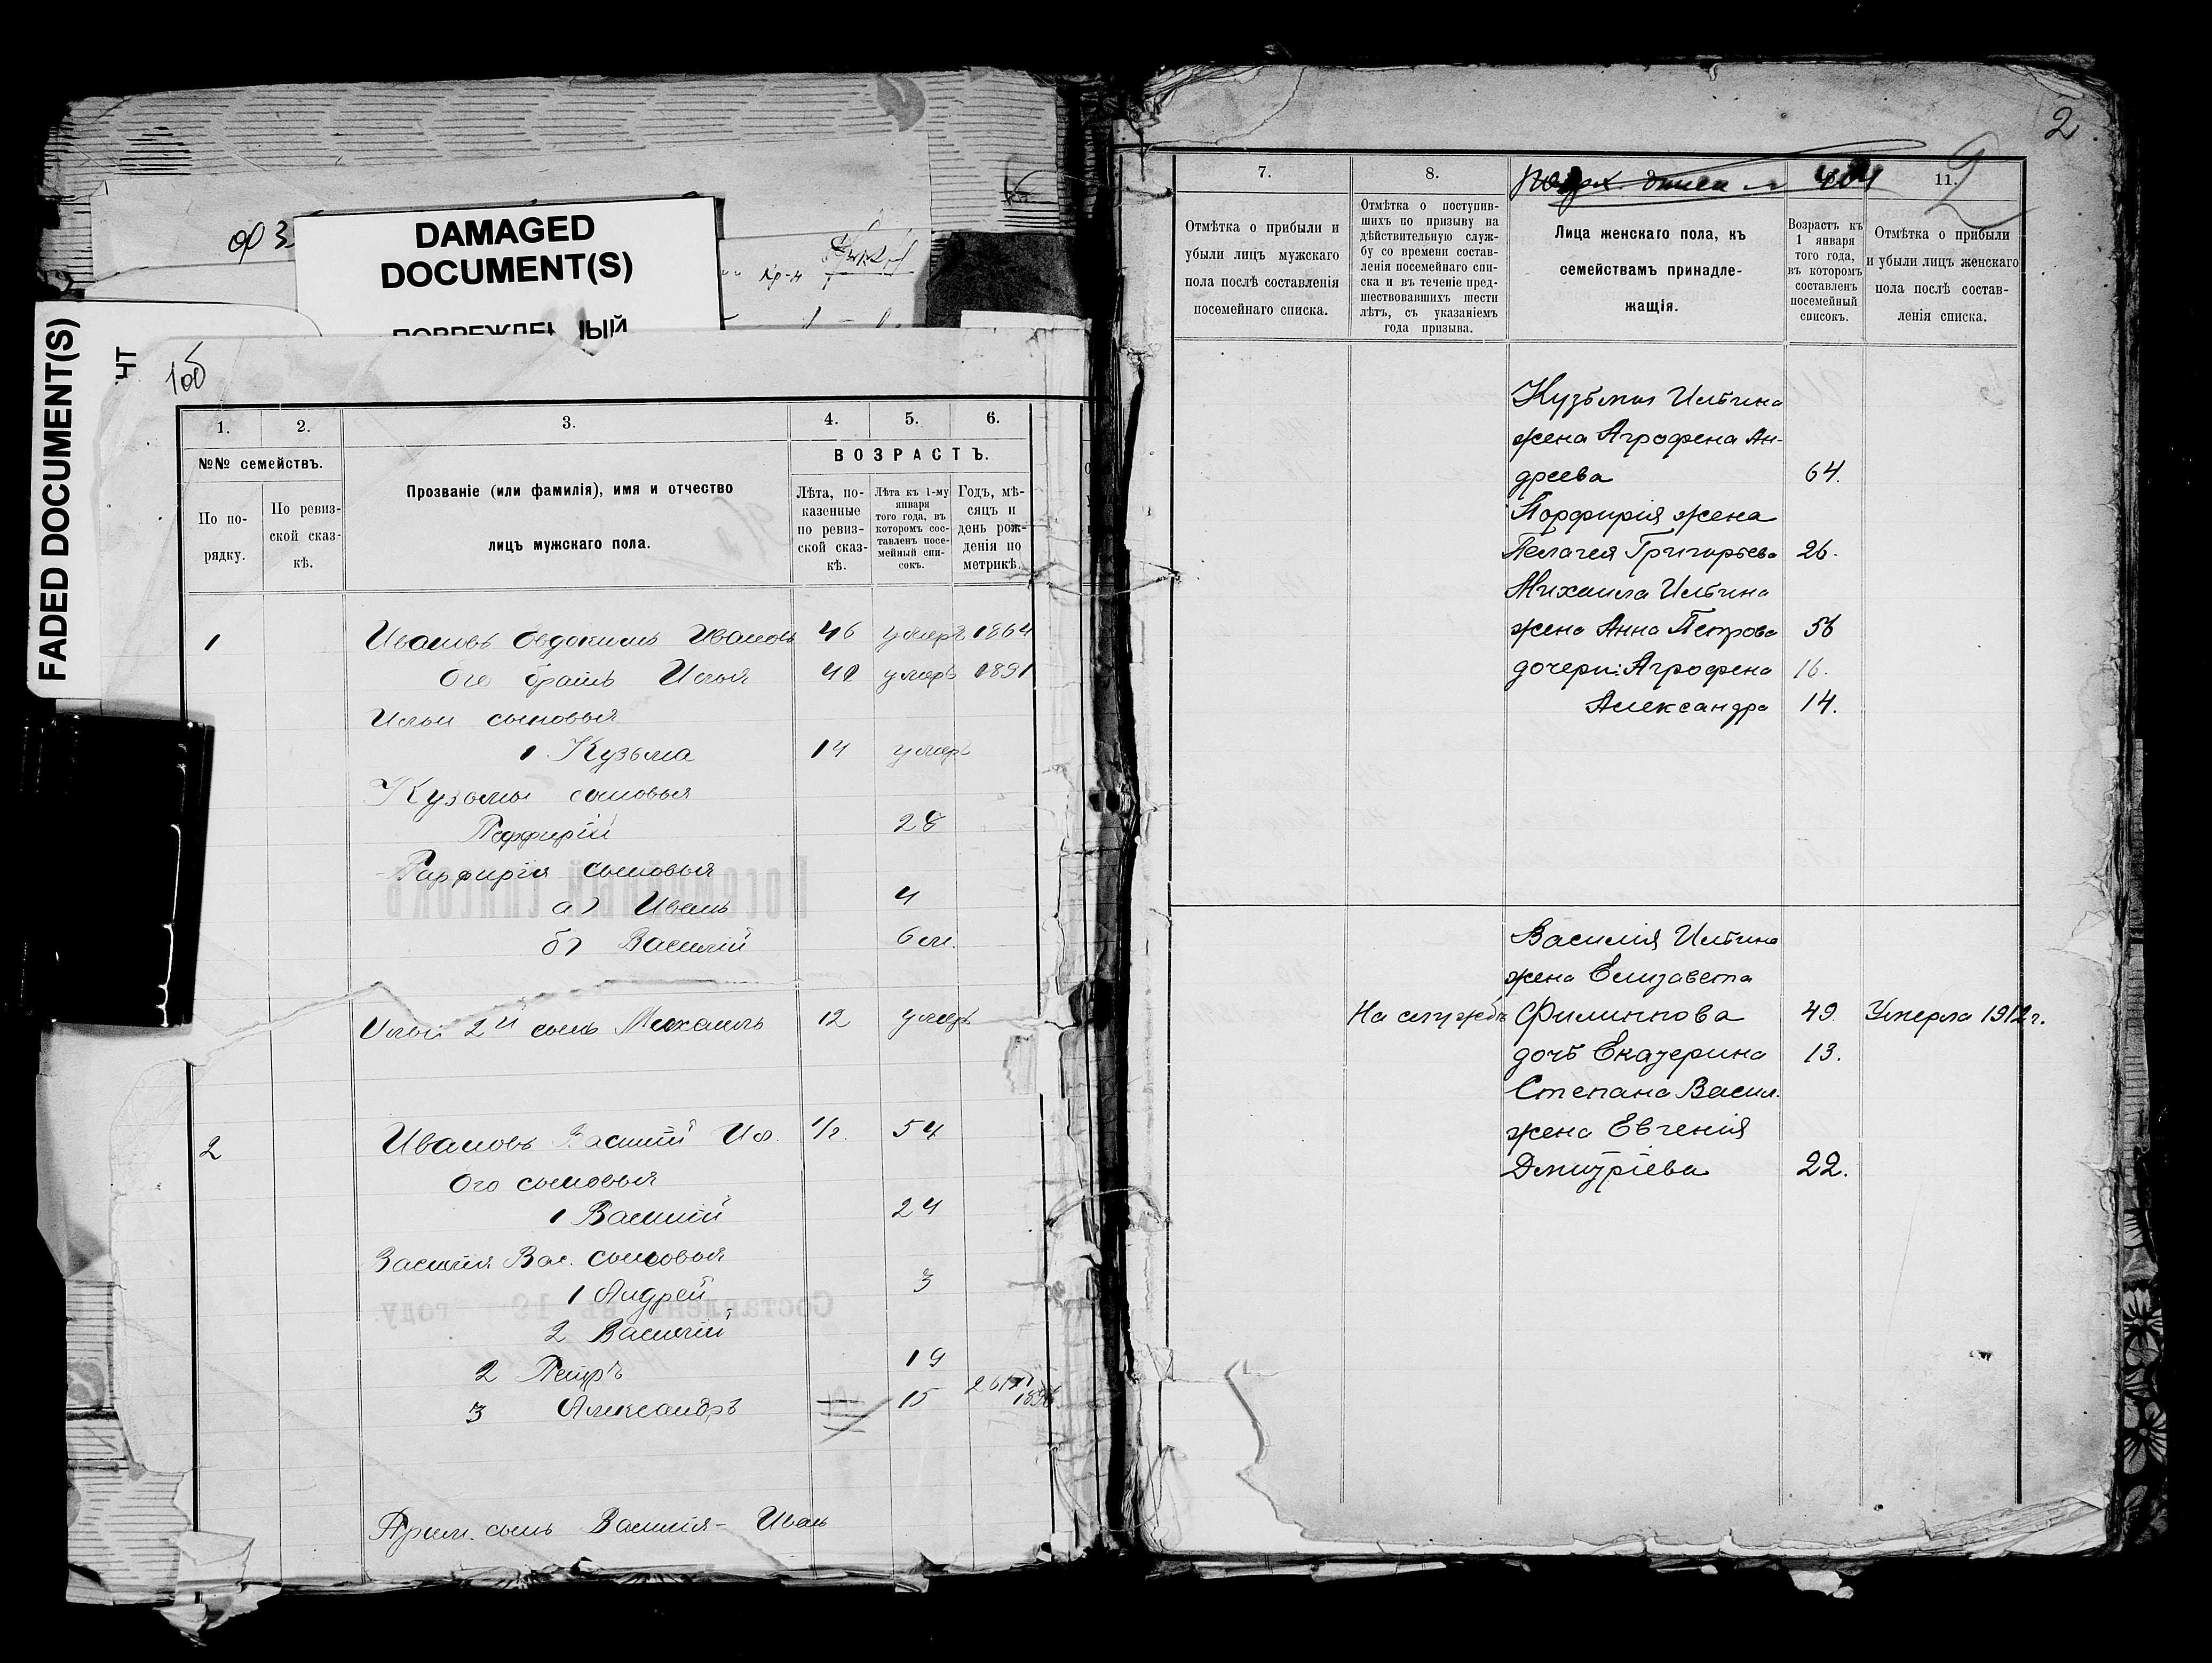 2
2
ф 3
DAMAGED
DOCUMENT(S)
ПОВРЕЖДЕННЫЙ
FADED DOCUMENT(S)
кр-н
1об
1.
2.
3.
4.
5.
6.
№№ семействъ.
ВОЗРАСТЪ.
По по-
рядку.
По ревиз-
ской сказ-
кѣ.
Прозваніе (или фамилія), имя и отчество
лицъ мужскаго пола.
Лѣта, по-
казенные
по ревиз-
ской сказ-
кѣ.
Лѣта къ 1-му
января
того года, въ
которомъ сос-
тавленъ посе-
мейный спи-
сокъ.
Годъ, мѣ-
сяцъ и
день рож-
денія по
метрикѣ.
1 Ивановъ Евдокимъ Ивановъ 46 умеръ 1864
Его братъ Илья 40 умеръ 1891
Ильи сыновья
1 Кузьма 14 умеръ
Кузьмы сыновья
Порфирій 28
Парфирія сыновья
а) Иванъ 4
б) Василій 6 м.
Ильи 2й сынъ Михаилъ 12 умеръ
2 Ивановъ Василій Ил. 1/2. 54
Его сыновья
1 Василій 24
Василія Вас. сыновья
1 Андрей 3
2 Василій
2 Петръ 19
3 Александръ 15
Прим. сынъ Василія - Иванъ
7.
8.
11.
Отмѣтка о прибыли и
убыли лицъ мужскаго
пола послѣ составленія
посемейнаго списка.
Отмѣтка о поступив-
шихъ по призыву на
дѣйствительную служ-
бу со времени состав-
ленія посемейнаго спи-
ска и въ теченіе пред-
шествовавшихъ шести
лѣтъ, съ указаніемъ
года призыва.
Лица женскаго пола, къ
семействамъ принадле-
жащія.
Возрастъ къ
1 января
того года,
въ которомъ
составленъ
посемейный
списокъ.
Отмѣтка о прибыли
и убыли лицъ женскаго
пола послѣ состав-
ленія списка.
Кузьмы Ильина
жена Агрофена Ан-
дреева 64.
Порфирія жена
Пелагея Григорьева 26.
Михаила Ильина
жена Анна Петрова 56
дочери: Агрофена 16.
Александра 14.
Василія Ильина
жена Елизавета
На службѣ Филиппова 49 Умерла 1912 г.
дочь Екатерина 13.
Степана Васил.
жена Евгенія
Дмитріева 22.